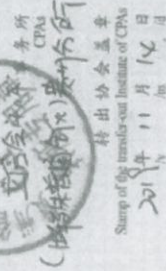 务所
CPAs
(特殊普通合伙)贵州分所
转出协会盖章
Stamp of the transfer-out Institute of CPAs
2019年 11月 14日